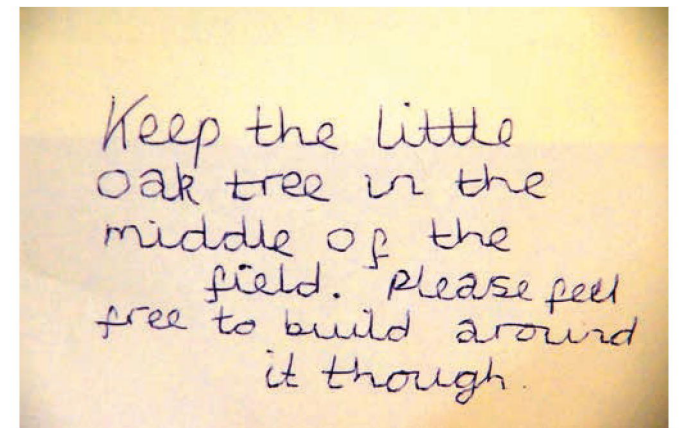 Keep the little
oak tree in the
middle of the
field. Please feel
free to build around
it though.